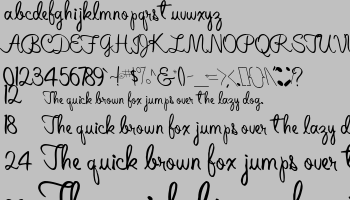 abcdefghijklmnopqrstuvwxyz
ABCDEFGHIJKLMNOPQRSTUVW
0123456789
12 The quick brown fox jumps over the lazy dog.
18 The quick brown fox jumps over the lazy d
24 The quick brown fox jumps over t